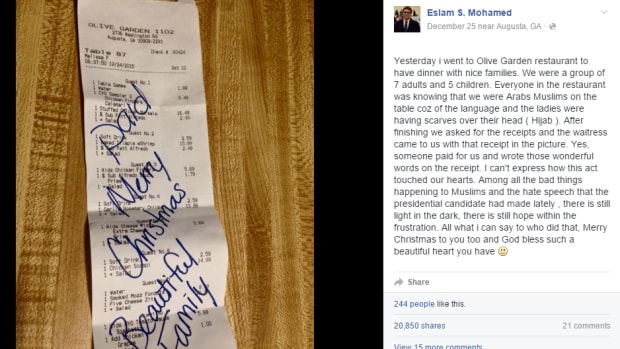 OLIVE GARDEN 1102
Augusta, GA
Table 87
12/24/2015
Guest No.1
1 Table Games
1 Water
Calamari
1 + Salad
Guest No.2
1 Soft Drink
1 + Salad
1 Kids Chicken
1 + Salad
1 Soft Drink
1 + Salad
1 Kids Cheese
Extra Cheese
1 Soft Drink
1 + Salad
1 Water
1 Smoked Mozz
1 Five Cheese Ziti
1 + Salad
Paid
Merry
Christmas
Beautiful
Family
Eslam S. Mohamed
December 25 near Augusta, GA ·
Yesterday i went to Olive Garden restaurant to
have dinner with nice families. We were a group of
7 adults and 5 children. Everyone in the restaurant
was knowing that we were Arabs Muslims on the
table coz of the language and the ladies were
having scarves over their head ( Hijab ). After
finishing we asked for the receipts and the waitress
came to us with that receipt in the picture. Yes,
someone paid for us and wrote those wonderful
words on the receipt. I can't express how this act
touched our hearts. Among all the bad things
happening to Muslims and the hate speech that the
presidential candidate had made lately , there is still
light in the dark, there is still hope within the
frustration. All what i can say to who did that, Merry
Christmas to you too and God bless such a
beautiful heart you have
Share
244 people like this.
20,850 shares
21 comments
View 15 more comments